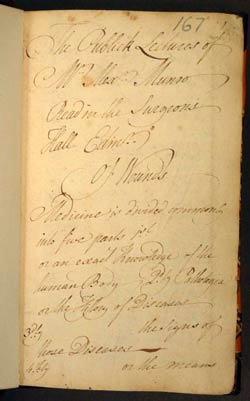 167
The Publick Lectures of
Mr Alexr Munro
Read in the Surgeons
Hall Edinr
Of Wounds
Medicine is divided commonly
into five parts 1st
or an exact knowledge of the
human Body 2dly Pathologica
or the History of Diseases
3dly the signs of
those Diseases
4thly or the means